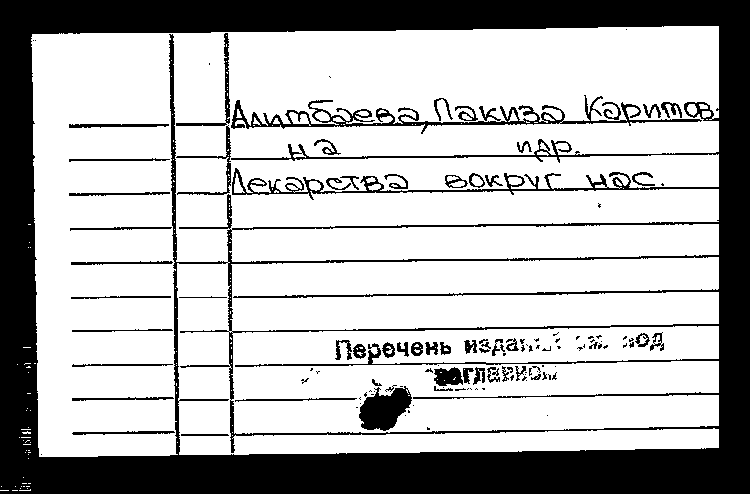 Алимбаева, Пакиза Каримов-
на и др.
Лекарства вокруг нас.
Перечень изданий см. под
заглавием